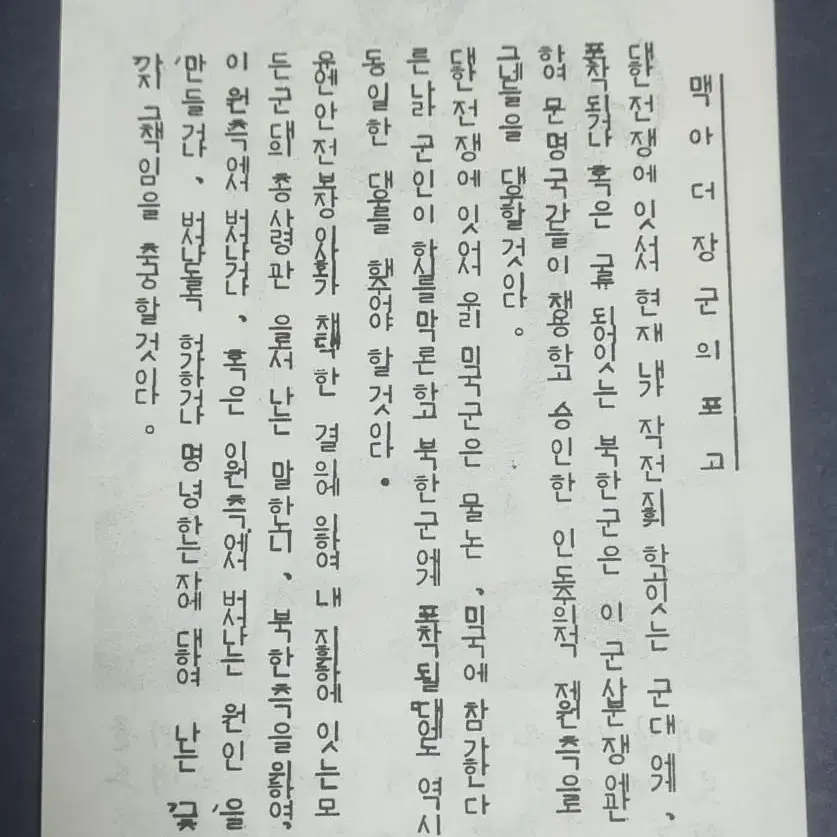 맥아더장군의포고
대한전쟁에 잇서서 현재 내가 작전지휘 하고잇는 군대에게、
포착되거나 혹은 구류 되어잇는 북한군은 이 군사분쟁에관
하여 문명국가들이 채용하고 승인한 인도주의적 제원측으로
그네들을 대우할것이다。
대한전쟁에 잇어서 우리 미국군은 물논、미국에 참가한다
른나라 군인이 하시를막론하고 북한군에게 포착될때에도 역시
동일한 대우를 해주어야 할것이다.
유엔안전보장이사회가 채택한 결의에 의하여 내 지휘하에 잇는모
든군대의 총사령관 으로서 나는 말하노니、북한측을위하여、
이 원측에서 벗어나거나、혹은 이원측에서 벗어나는 원인 을
만들거나、벗어나도록 허가하거나 명녕하는자에 대하여 나는 끗
까지 그책임을 추궁할것이다。